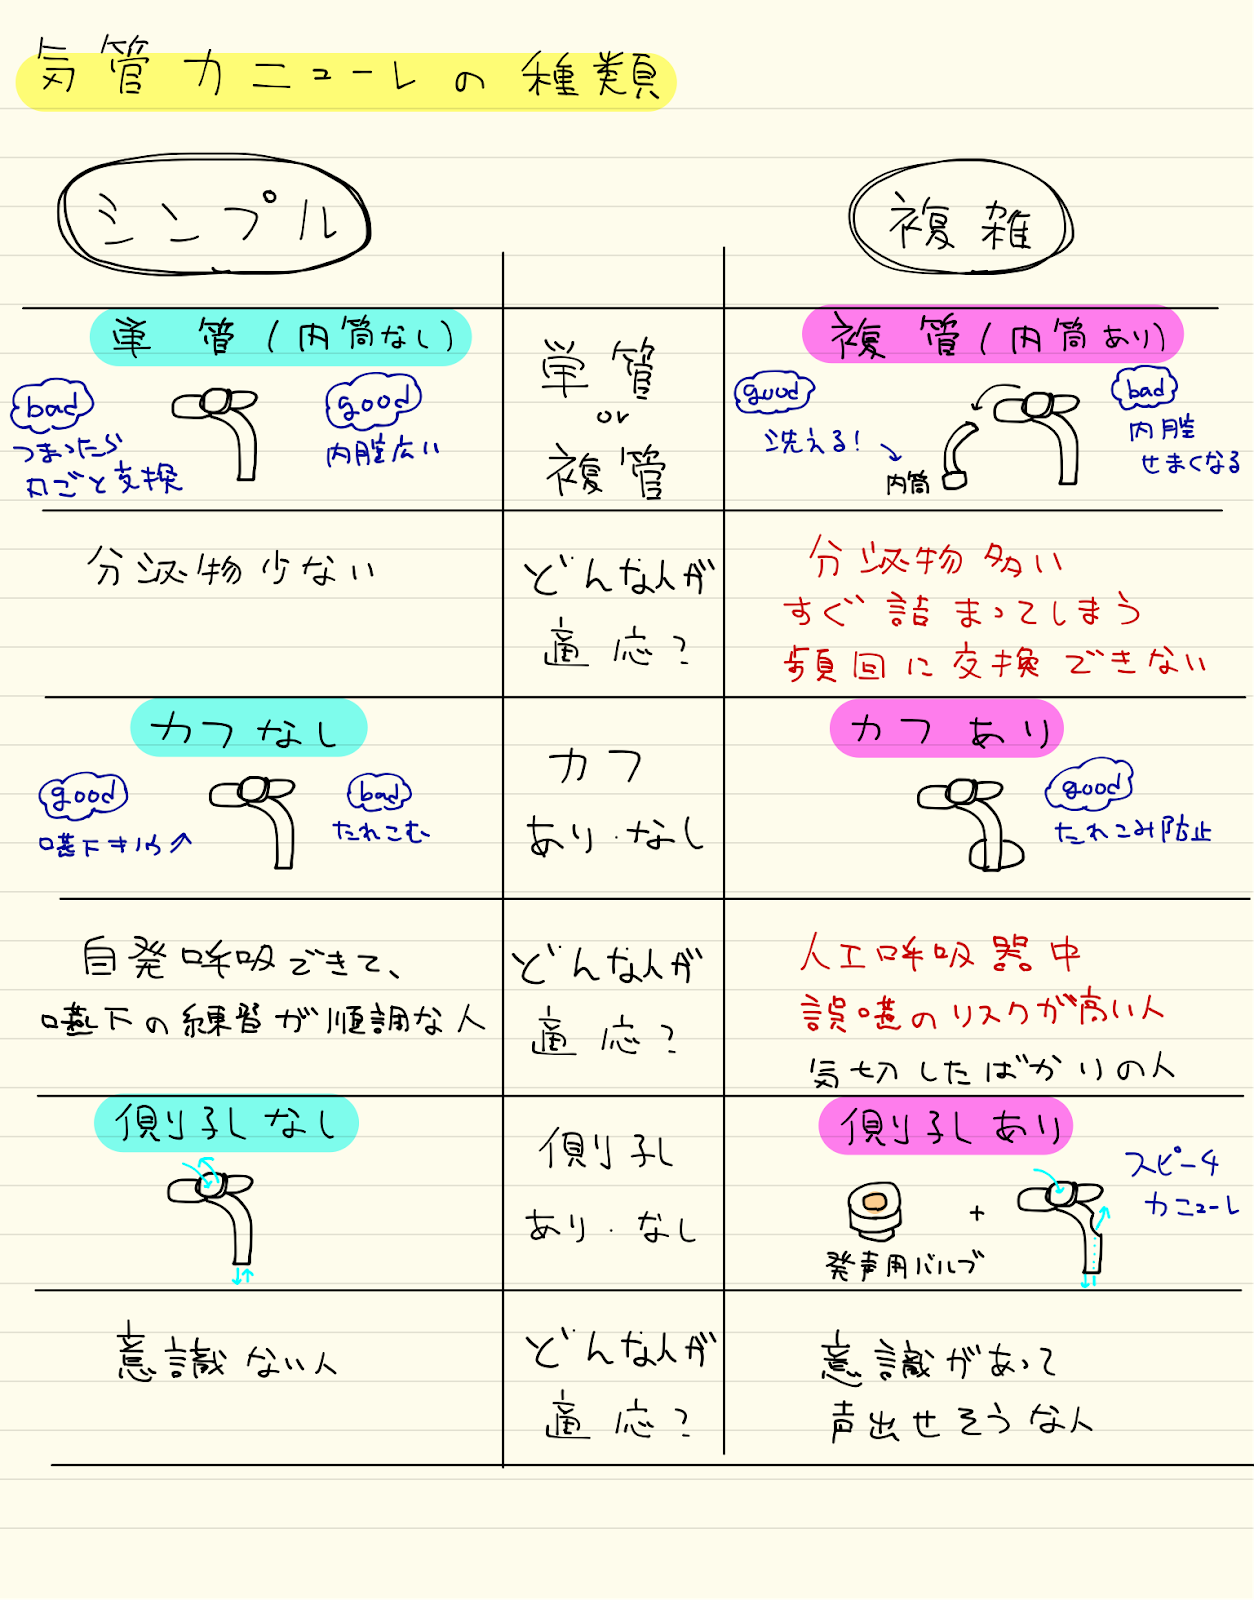 気管カニューレの種類
シンプル
複雑
単管(内筒なし)
bad
つまったら
丸ごと交換
good
内腔広い
単管
or
複管
複管(内筒あり)
good
洗える!
内筒
bad
内腔
せまくなる
分泌物少ない
どんな人が
適応?
分泌物多い
すぐ詰まってしまう
頻回に交換できない
カフなし
good
嚥下キノウ↑
bad
たれこむ
カフ
あり・なし
カフあり
good
たれこみ防止
自発呼吸できて、
嚥下の練習が順調な人
どんな人が
適応?
人工呼吸器中
誤嚥のリスクが高い人
気切したばかりの人
側孔なし
側孔
あり・なし
側孔あり
発声用バルブ
+
スピーチ
カニューレ
意識ない人
どんな人が
適応?
意識があって
声出せそうな人